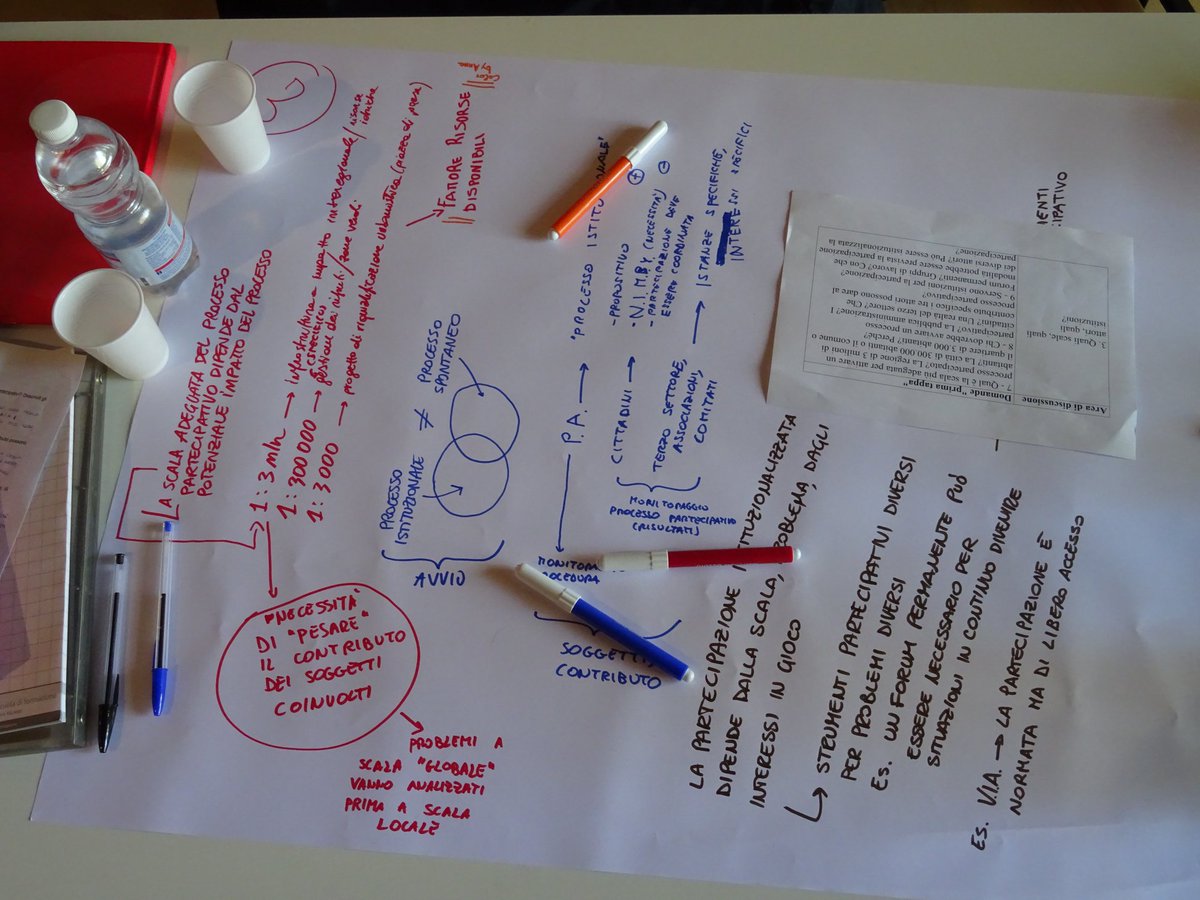 3
LA SCALA ADEGUATA DEL PROCESSO
PARTECIPATIVO DIPENDE DAL
POTENZIALE IMPATTO DEL PROCESSO
1:3 mln → infrastruttura a impatto interregionale/risorse
idriche
SPECIFICO
1:300000 → gestione dei rifiuti/zone verdi
1:3000 → progetto di riqualificazione urbanistica (piazza di paese)
FATTORE RISORSE
DISPONIBILI
"NECESSITÀ
DI "PESARE"
IL CONTRIBUTO
DEI SOGGETTI
COINVOLTI
PROBLEMI A
SCALA "GLOBALE"
VANNO ANALIZZATI
PRIMA A SCALA
LOCALE
PROCESSO
ISTITUZIONALE ≠ PROCESSO
SPONTANEO
AVVIO
P.A. → "PROCESSO ISTITUZIONALE"
CITTADINI → - PROPOSITIVO +
- N.I.M.B.Y (NECESSITÀ) -
- PARTECIPAZIONE DEVE
ESSERE COORDINATA
TERZO SETTORE, → ISTANZE SPECIFICHE,
ASSOCIAZIONI, INTERESSI SPECIFICI
COMITATI
MONITORAGGIO
PROCESSO PARTECIPATIVO
(RISULTATI)
SOGGETTI,
CONTRIBUTO
LA PARTECIPAZIONE ISTITUZIONALIZZATA
DIPENDE DALLA SCALA, PROBLEMA, DAGLI
INTERESSI IN GIOCO
↳ STRUMENTI PARTECIPATIVI DIVERSI
PER PROBLEMI DIVERSI
ES. UN FORUM PERMANENTE PUÒ
ESSERE NECESSARIO PER
SITUAZIONI IN CONTINUO DIVENIRE
ES. V.I.A. → LA PARTECIPAZIONE È
NORMATA MA DI LIBERO ACCESSO
Area di discussione
Domande "prima tappa"
3. Quali scale, quali
attori, quali
istituzioni?
7 - Qual è la scala più adeguata per attivare un
processo partecipato? La regione di 3 milioni di
abitanti? La città di 300 000 abitanti o il comune o
il quartiere di 3.000 abitanti? Perché?
8 - Chi dovrebbe avviare un processo
partecipativo? La pubblica amministrazione? I
cittadini? Una realtà del terzo settore? Che
contributo specifico i tre attori possono dare al
processo partecipativo?
9 - Servono istituzioni per la partecipazione?
Forum permanenti? Gruppi di lavoro? Con che
modalità potrebbe essere prevista la partecipazione
dei diversi attori? Può essere istituzionalizzata la
partecipazione?